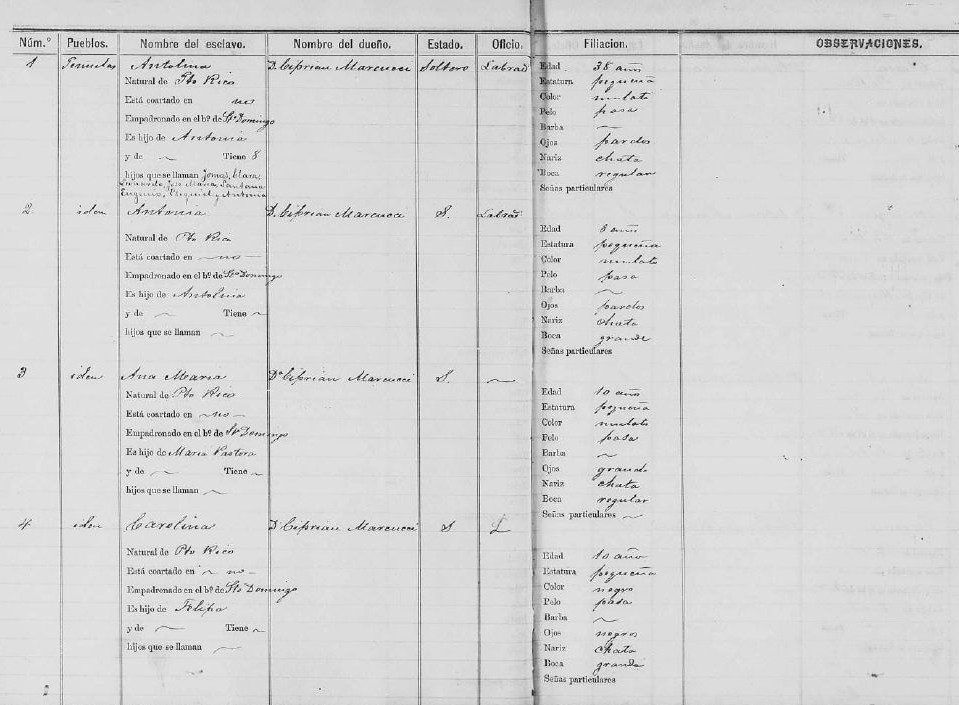 Núm.º Pueblos. Nombre del esclavo. Nombre del dueño. Estado. Oficio. Filiacion. OBSERVACIONES.
1 Antolina D. Ciprian Marcucci Soltero Labrad
Natural de Pto Rico
Está coartado en no
Empadronado en el bº de Sto Domingo
Es hijo de Antonia
y de ~ Tiene 8
hijos que se llaman Tomas, Clara,
Jose Maria, Santana
Eugenio, Exequiel y Antonia
Edad 38 años
Estatura pequeña
Color mulato
Pelo pasa
Barba ~
Ojos pardos
Nariz chata
Boca regular
Señas particulares
2 idem Antonia D. Ciprian Marcucci S. Labrad
Natural de Pto Rico
Está coartado en ~ no ~
Empadronado en el bº de Sto Domingo
Es hijo de Antolina
y de ~ Tiene ~
hijos que se llaman ~
Edad 8 años
Estatura pequeña
Color mulato
Pelo pasa
Barba ~
Ojos pardos
Nariz chata
Boca grande
Señas particulares
3 idem Ana Maria Dn Ciprian Marcucci S. ~
Natural de Pto Rico
Está coartado en ~ no ~
Empadronado en el bº de Sto Domingo
Es hijo de Maria Pastora
y de ~ Tiene ~
hijos que se llaman ~
Edad 10 año
Estatura pequeña
Color mulato
Pelo pasa
Barba ~
Ojos grande
Nariz chata
Boca regular
Señas particulares ~
4 idem Carolina D Ciprian Marcucci S L
Natural de Pto Rico
Está coartado en ~ no ~
Empadronado en el bº de Sto Domingo
Es hijo de Felipa
y de ~ Tiene ~
hijos que se llaman ~
Edad 10 año
Estatura pequeña
Color negro
Pelo pasa
Barba ~
Ojos negros
Nariz chata
Boca grande
Señas particulares